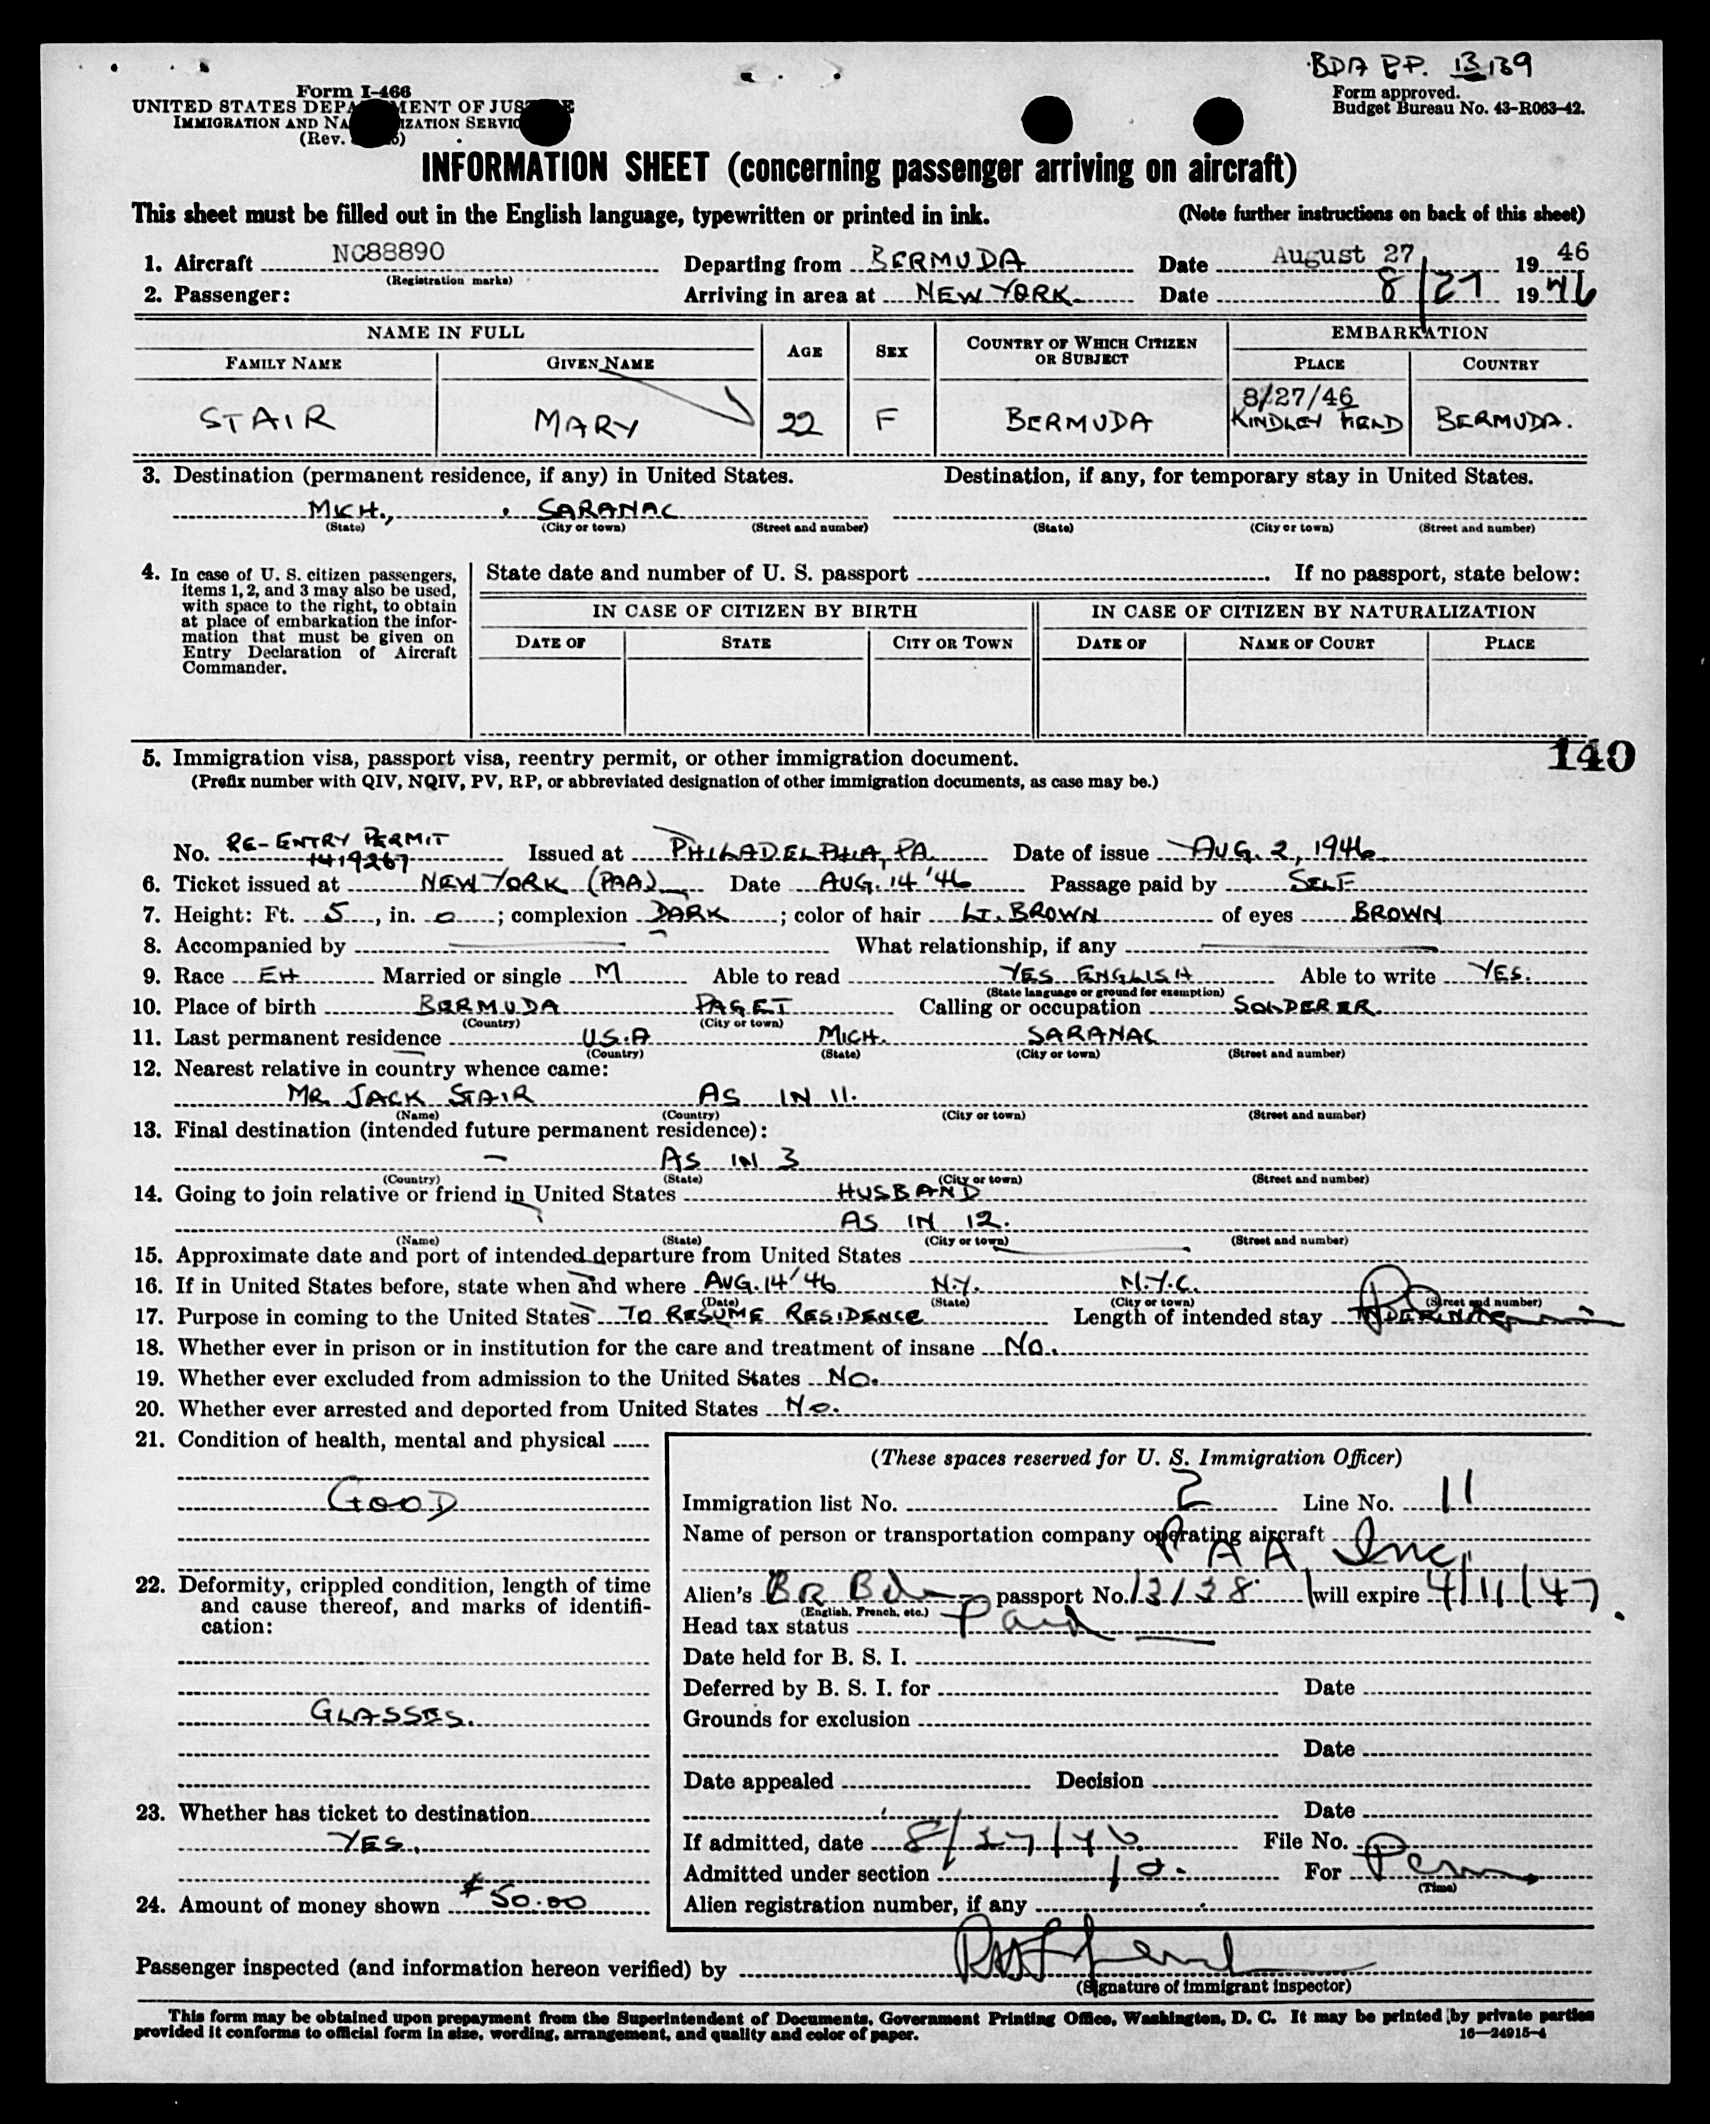 BDA P.P. 13139
Form I-466
UNITED STATES DEPARTMENT OF JUSTICE
IMMIGRATION AND NATURALIZATION SERVICE
(Rev.
Form approved.
Budget Bureau No. 43-R063-42.
INFORMATION SHEET (concerning passenger arriving on aircraft)
This sheet must be filled out in the English language, typewritten or printed in ink. (Note further instructions on back of this sheet)
1. Aircraft NC88890 Departing from BERMUDA Date August 27, 1946
(Registration marks)
2. Passenger: Arriving in area at NEW YORK Date 8/27 1946
NAME IN FULL AGE SEX COUNTRY OF WHICH CITIZEN OR SUBJECT EMBARKATION
FAMILY NAME GIVEN NAME PLACE COUNTRY
8/27/46
STAIR MARY 22 F BERMUDA KINDLEY FIELD BERMUDA.
3. Destination (permanent residence, if any) in United States. Destination, if any, for temporary stay in United States.
MICH., SARANAC
(State) (City or town) (Street and number) (State) (City or town) (Street and number)
4. In case of U. S. citizen passengers,
items 1, 2, and 3 may also be used,
with space to the right, to obtain
at place of embarkation the infor-
mation that must be given on
Entry Declaration of Aircraft
Commander.
State date and number of U. S. passport . If no passport, state below:
IN CASE OF CITIZEN BY BIRTH IN CASE OF CITIZEN BY NATURALIZATION
DATE OF STATE CITY OR TOWN DATE OF NAME OF COURT PLACE
140
5. Immigration visa, passport visa, reentry permit, or other immigration document.
(Prefix number with QIV, NQIV, PV, RP, or abbreviated designation of other immigration documents, as case may be.)
RE-ENTRY PERMIT
No. 1419267 Issued at PHILADELPHIA, PA. Date of issue AUG. 2, 1946
6. Ticket issued at NEW YORK (PAA) Date AUG. 14 '46 Passage paid by SELF
7. Height: Ft. 5, in. 0; complexion DARK; color of hair LT. BROWN of eyes BROWN
8. Accompanied by What relationship, if any
9. Race EH Married or single M Able to read YES ENGLISH Able to write YES.
(State language or ground for exemption)
10. Place of birth BERMUDA PAGET Calling or occupation SOLDERER.
(Country) (City or town)
11. Last permanent residence U.S.A MICH. SARANAC
(Country) (State) (City or town) (Street and number)
12. Nearest relative in country whence came:
MR JACK STAIR AS IN 11.
(Name) (Country) (City or town) (Street and number)
13. Final destination (intended future permanent residence):
AS IN 3
(Country) (State) (City or town) (Street and number)
14. Going to join relative or friend in United States HUSBAND
AS IN 12.
(Name) (State) (City or town) (Street and number)
15. Approximate date and port of intended departure from United States
16. If in United States before, state when and where AUG. 14 '46 N.Y. N.Y.C.
(Date) (State) (City or town) (Street and number)
17. Purpose in coming to the United States TO RESUME RESIDENCE Length of intended stay
18. Whether ever in prison or in institution for the care and treatment of insane No.
19. Whether ever excluded from admission to the United States No.
20. Whether ever arrested and deported from United States No.
21. Condition of health, mental and physical
GOOD
22. Deformity, crippled condition, length of time
and cause thereof, and marks of identifi-
cation:
GLASSES.
23. Whether has ticket to destination
YES.
24. Amount of money shown $50.00
(These spaces reserved for U. S. Immigration Officer)
Immigration list No. 2 Line No. 11
Name of person or transportation company operating aircraft
P A A Inc.
Alien's BR Bda passport No. 13138 will expire 4/11/47.
(English, French, etc.)
Head tax status Paid
Date held for B. S. I.
Deferred by B. S. I. for Date
Grounds for exclusion
Date
Date appealed Decision
Date
If admitted, date 8/27/46 File No.
Admitted under section For Perm
(Time)
Alien registration number, if any
Passenger inspected (and information hereon verified) by
(Signature of immigrant inspector)
This form may be obtained upon prepayment from the Superintendent of Documents, Government Printing Office, Washington, D. C. It may be printed by private parties
provided it conforms to official form in size, wording, arrangement, and quality and color of paper. 16—24915-4